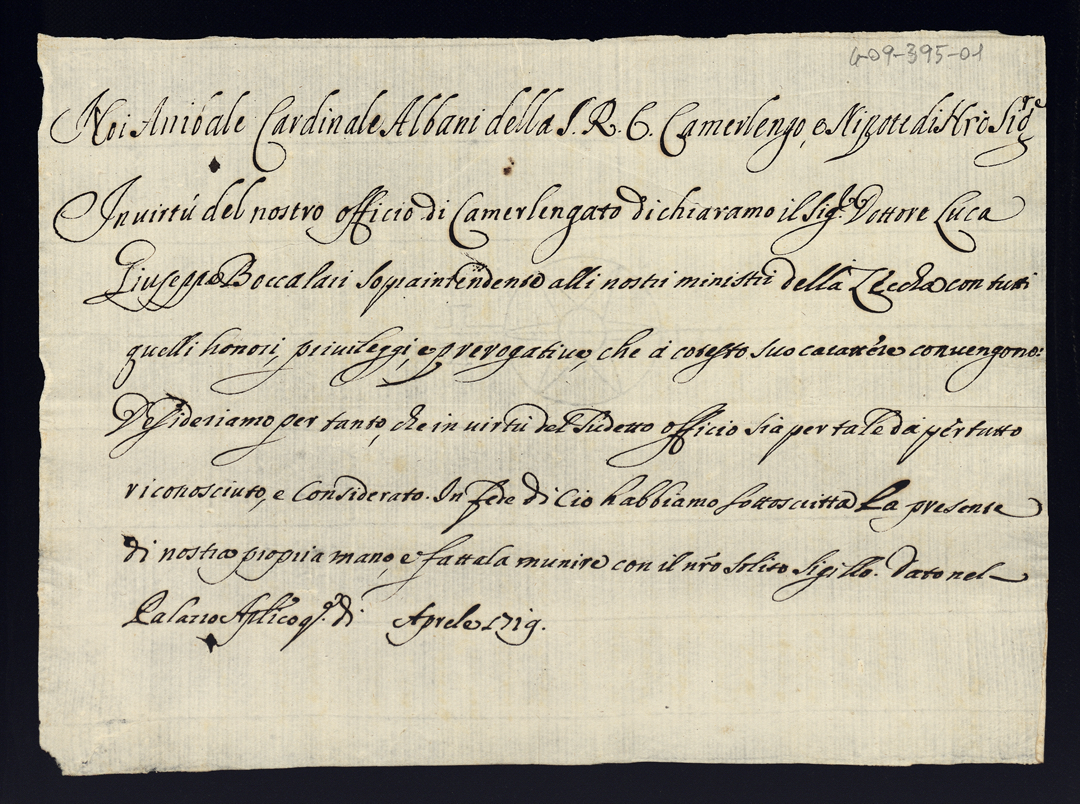 6-09-395-01
Noi Anibale Cardinale Albani della S. R. C. Camerlengo, e Nipote di Nr̃o Sig.re
In virtú del nostro officio di Camerlengato dichiaramo il Sig.r Dottore Luca
Giuseppe Boccalari sopraintendente alli nostri ministri della Zeccha con tutti
quelli honori, privileggi, e prerogative, che á cotesto suo carattere convengono:
Desideriamo per tanto, che in virtú del Sudetto officio sia per tale da pertutto
riconosciuto, e Considerato. In Fede di Ciò habbiamo sottoscritta La presente
di nostra propria mano, e fattala munire con il nr̃o solito Sigillo. Dato nel
Palazzo Aplico q.o di Aprele 1719.